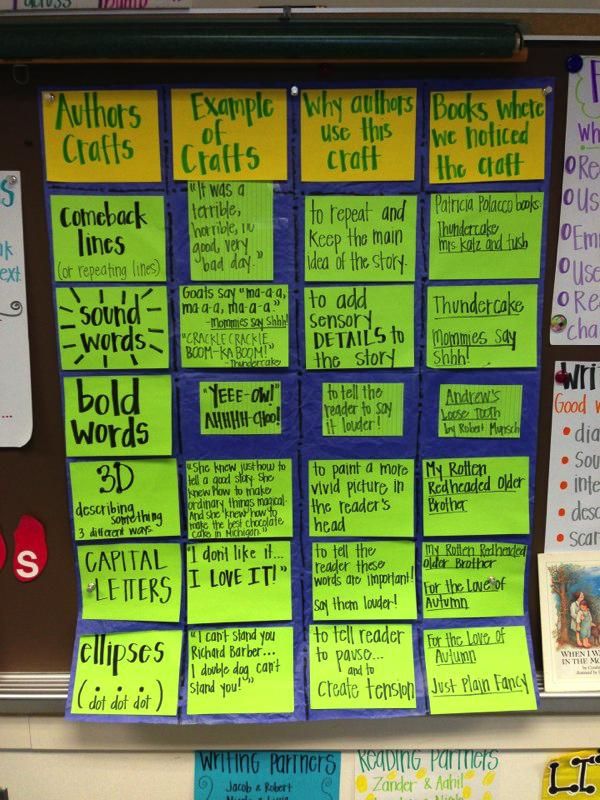 across
Authors
Crafts
Example
of
Crafts
Why authors
use this
craft
Books where
we noticed
the craft
comeback
lines
(or repeating lines)
"It was a
terrible,
horrible, no
good, very
bad day."
to repeat and
keep the main
idea of the story.
Patricia Polacco books:
Thundercake
Mrs Katz and tush
sound
words
Goats say "ma-a-a,
ma-a-a, ma-a-a."
-mommies say shhh!
"CRACKLE CRACKLE
BOOM-KA BOOM!"
-Thundercake
to add
sensory
DETAILS to
the story
Thundercake
Mommies say
Shhh!
bold
words
"YEEE-OW!"
AHHHH-CHOO!
to tell the
reader to say
it louder!
Andrew's
Loose Tooth
by Robert Munsch
3D
describing
something
3 different ways
"She knew just how to
tell a good story. She
knew how to make
ordinary things magical.
And she knew how to
make the best chocolate
cake in Michigan."
to paint a more
vivid picture in
the reader's
head
My Rotten
Redheaded Older
Brother
CAPITAL
LETTERS
"I don't like it...
I LOVE IT!"
to tell the
reader these
words are important!
say them louder!
My Rotten Redheaded
Older Brother
For the Love of
Autumn
ellipses
(dot dot dot)
"I can't stand you
Richard Barber...
I double dog can't
stand you!"
to tell reader
to pause...
and to
create tension
For the Love of
Autumn
Just Plain Fancy
text.
S
Good w
WHEN I W
IN THE MO
Writing Partners
Jacob & Robert
Reading Partners
Zander & Aahil
LIT